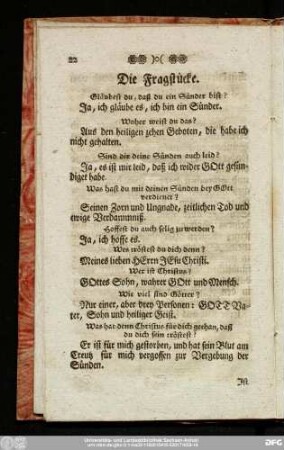 22
Die Fragstücke.
Gläubest du, daß du ein Sünder bist?
Ja, ich gläube es, ich bin ein Sünder.
Woher weist du das?
Aus den heiligen zehen Geboten, die habe ich
nicht gehalten.
Sind dir deine Sünden auch leid?
Ja, es ist mir leid, daß ich wider GOtt gesün-
diget habe.
Was hast du mit deinen Sünden bey GOtt
verdienet?
Seinen Zorn und Ungnade, zeitlichen Tod und
ewige Verdammniß.
Hoffest du auch selig zu werden?
Ja, ich hoffe es.
Wes tröstest du dich denn?
Meines lieben HErrn JEsu Christi.
Wer ist Christus?
GOttes Sohn, wahrer GOtt und Mensch.
Wie viel sind Götter?
Nur einer, aber drey Personen: GOTT Va-
ter, Sohn und heiliger Geist.
Was hat denn Christus für dich gethan, daß
du dich sein tröstest?
Er ist für mich gestorben, und hat sein Blut am
Creutz für mich vergossen zur Vergebung der
Sünden.
Ist